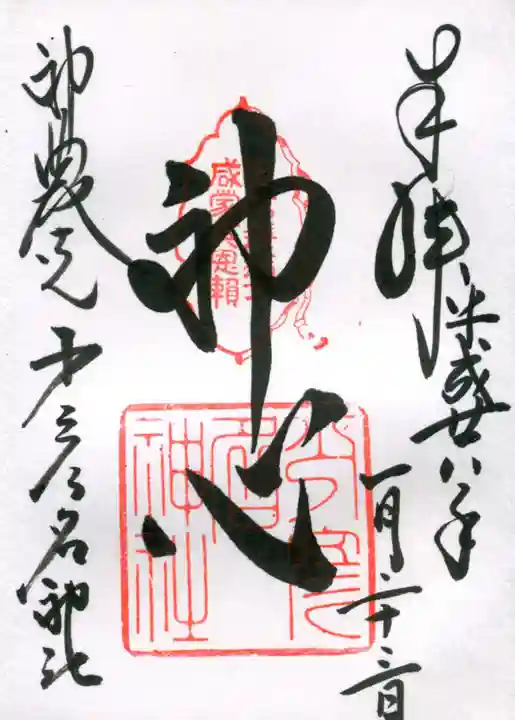 奉拝
平成廿八年
一月二十三日
神心
神農さん 少彦名神社
少彦名神社